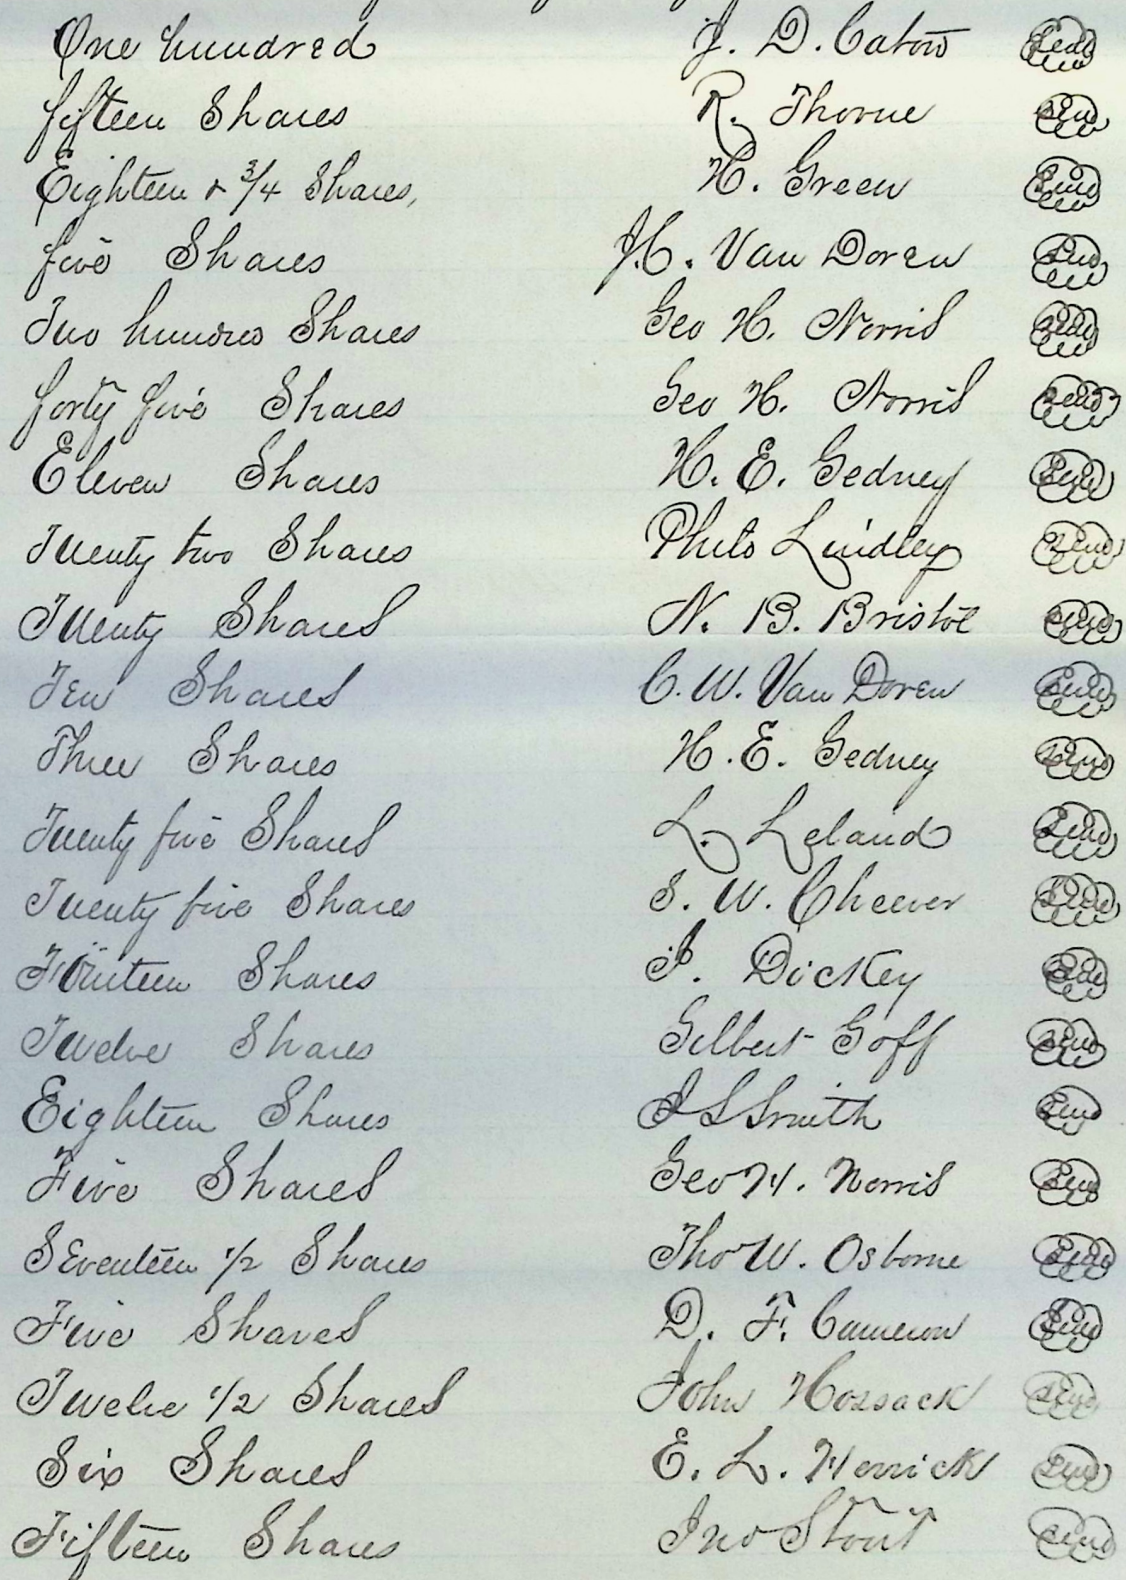 One hundred J. D. Caton Seal
fifteen Shares R. Thorne Seal
Eighteen & 3/4 Shares, H. Green Seal
five Shares J.C. Van Doren Seal
Two hundred Shares Geo H. Norris Seal
forty five Shares Geo H. Norris Seal
Eleven Shares H. E. Gedney Seal
Twenty two Shares Philo Lindley Seal
Twenty Shares N. B. Bristol Seal
Ten Shares C. W. Van Doren Seal
Three Shares H. E. Gedney Seal
Twenty five Shares L. Leland Seal
Twenty five Shares S. W. Cheever Seal
Fourteen Shares J. Dickey Seal
Twelve Shares Gilbert Goff Seal
Eighteen Shares I L Smith Seal
Five Shares Geo H. Norris Seal
Seventeen 1/2 Shares Tho W. Osborne Seal
Five Shares D. F. Cameron Seal
Twelve 1/2 Shares John Hossack Seal
Six Shares E. L. Herrick Seal
Fifteen Shares Jno Stout Seal